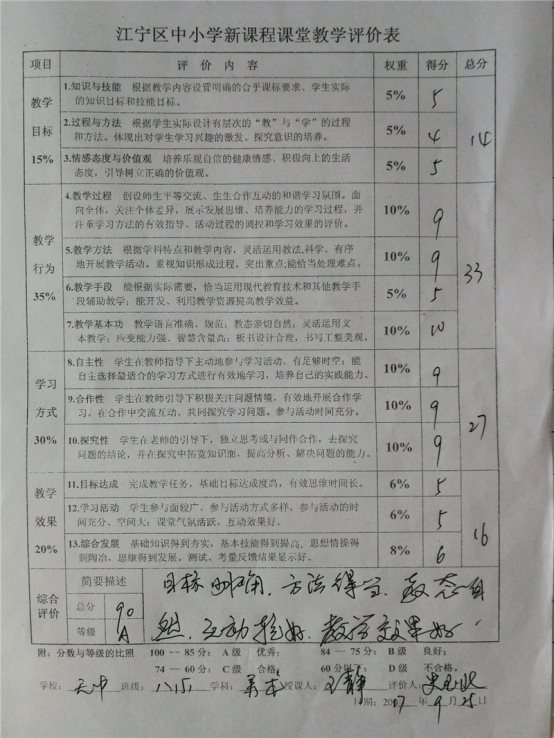 江宁区中小学新课程课堂教学评价表
项目 评 价 内 容 权重 得分 总分
教学目标15% 1.知识与技能 根据教学内容设置明确的合乎课标要求、学生实际 5% 5 14
的知识目标和技能目标。
2.过程与方法 根据学生实际设计有层次的“教”与“学”的过程 5% 4
和方法。体现出对学生学习兴趣的激发、探究意识的培养。
3.情感态度与价值观 培养乐观自信的健康情感,积极向上的生活 5% 5
态度,引导树立正确的价值观。
教学行为35% 4.教学过程 创设师生平等交流、生生合作互动的和谐学习氛围。面 10% 9 33
向全体,关注个体差异,展示发展思维、培养能力的学习过程,并
注重学习方法的有效指导、活动过程的调控和学习效果的评价。
5.教学方法 根据学科特点和教学内容,灵活运用教法,科学、有序 10% 9
地开展教学活动。重视知识形成过程,突出重点;能恰当处理难点。
6.教学手段 能根据实际需要,恰当运用现代教育技术和其他教学手 5% 5
段辅助教学;能开发、利用教学资源提高教学效益。
7.教学基本功 教学语言准确、规范;教态亲切自然;灵活运用文 10% 10
本教学;应变能力强、智慧含量高;板书设计合理,书写工整美观。
学习方式30% 8.自主性 学生在教师指导下主动地参与学习活动,有足够时空;能 10% 9 27
自主选择最适合的学习方式进行有效地学习,培养自己的实践能力。
9.合作性 学生在教师引导下积极关注问题情境,有效地开展合作学 10% 9
习,在合作中交流互动、共同探究学习问题。参与活动时间充分。
10.探究性 学生在老师的引导下,独立思考或与同伴合作,去探究 10% 9
问题的结论,并在探究中拓宽知识面,提高分析、解决问题的能力。
教学效果20% 11.目标达成 完成教学任务,基础目标达成度高,有效思维时间长。 6% 5 16
12.学习活动 学生参与面较广、参与活动方式多样,参与活动的时 6% 5
间充分、空间大;课堂气氛活跃,互动效果好。
13.综合发展 基础知识得到夯实,基本技能得到提高、思想情操得 8% 6
到陶冶,思维得到发展。测试、考量反馈结果显示好。
综合评价 简要描述 目标明确、方法得当、教态自
总分 90
等级 A 然、互动较好、教学效果好。
附:分数与等级的比照 100 — 85 分: A 级 优秀; 84 — 75 分: B 级 良好;
74 — 60 分: C 级 合格; 60 分以下: D 级 不合格。
学校: 天中 班级: 八(5) 学科: 美术 授课人: 王静 评价人:
日期: 2017 年 9 月 25 日